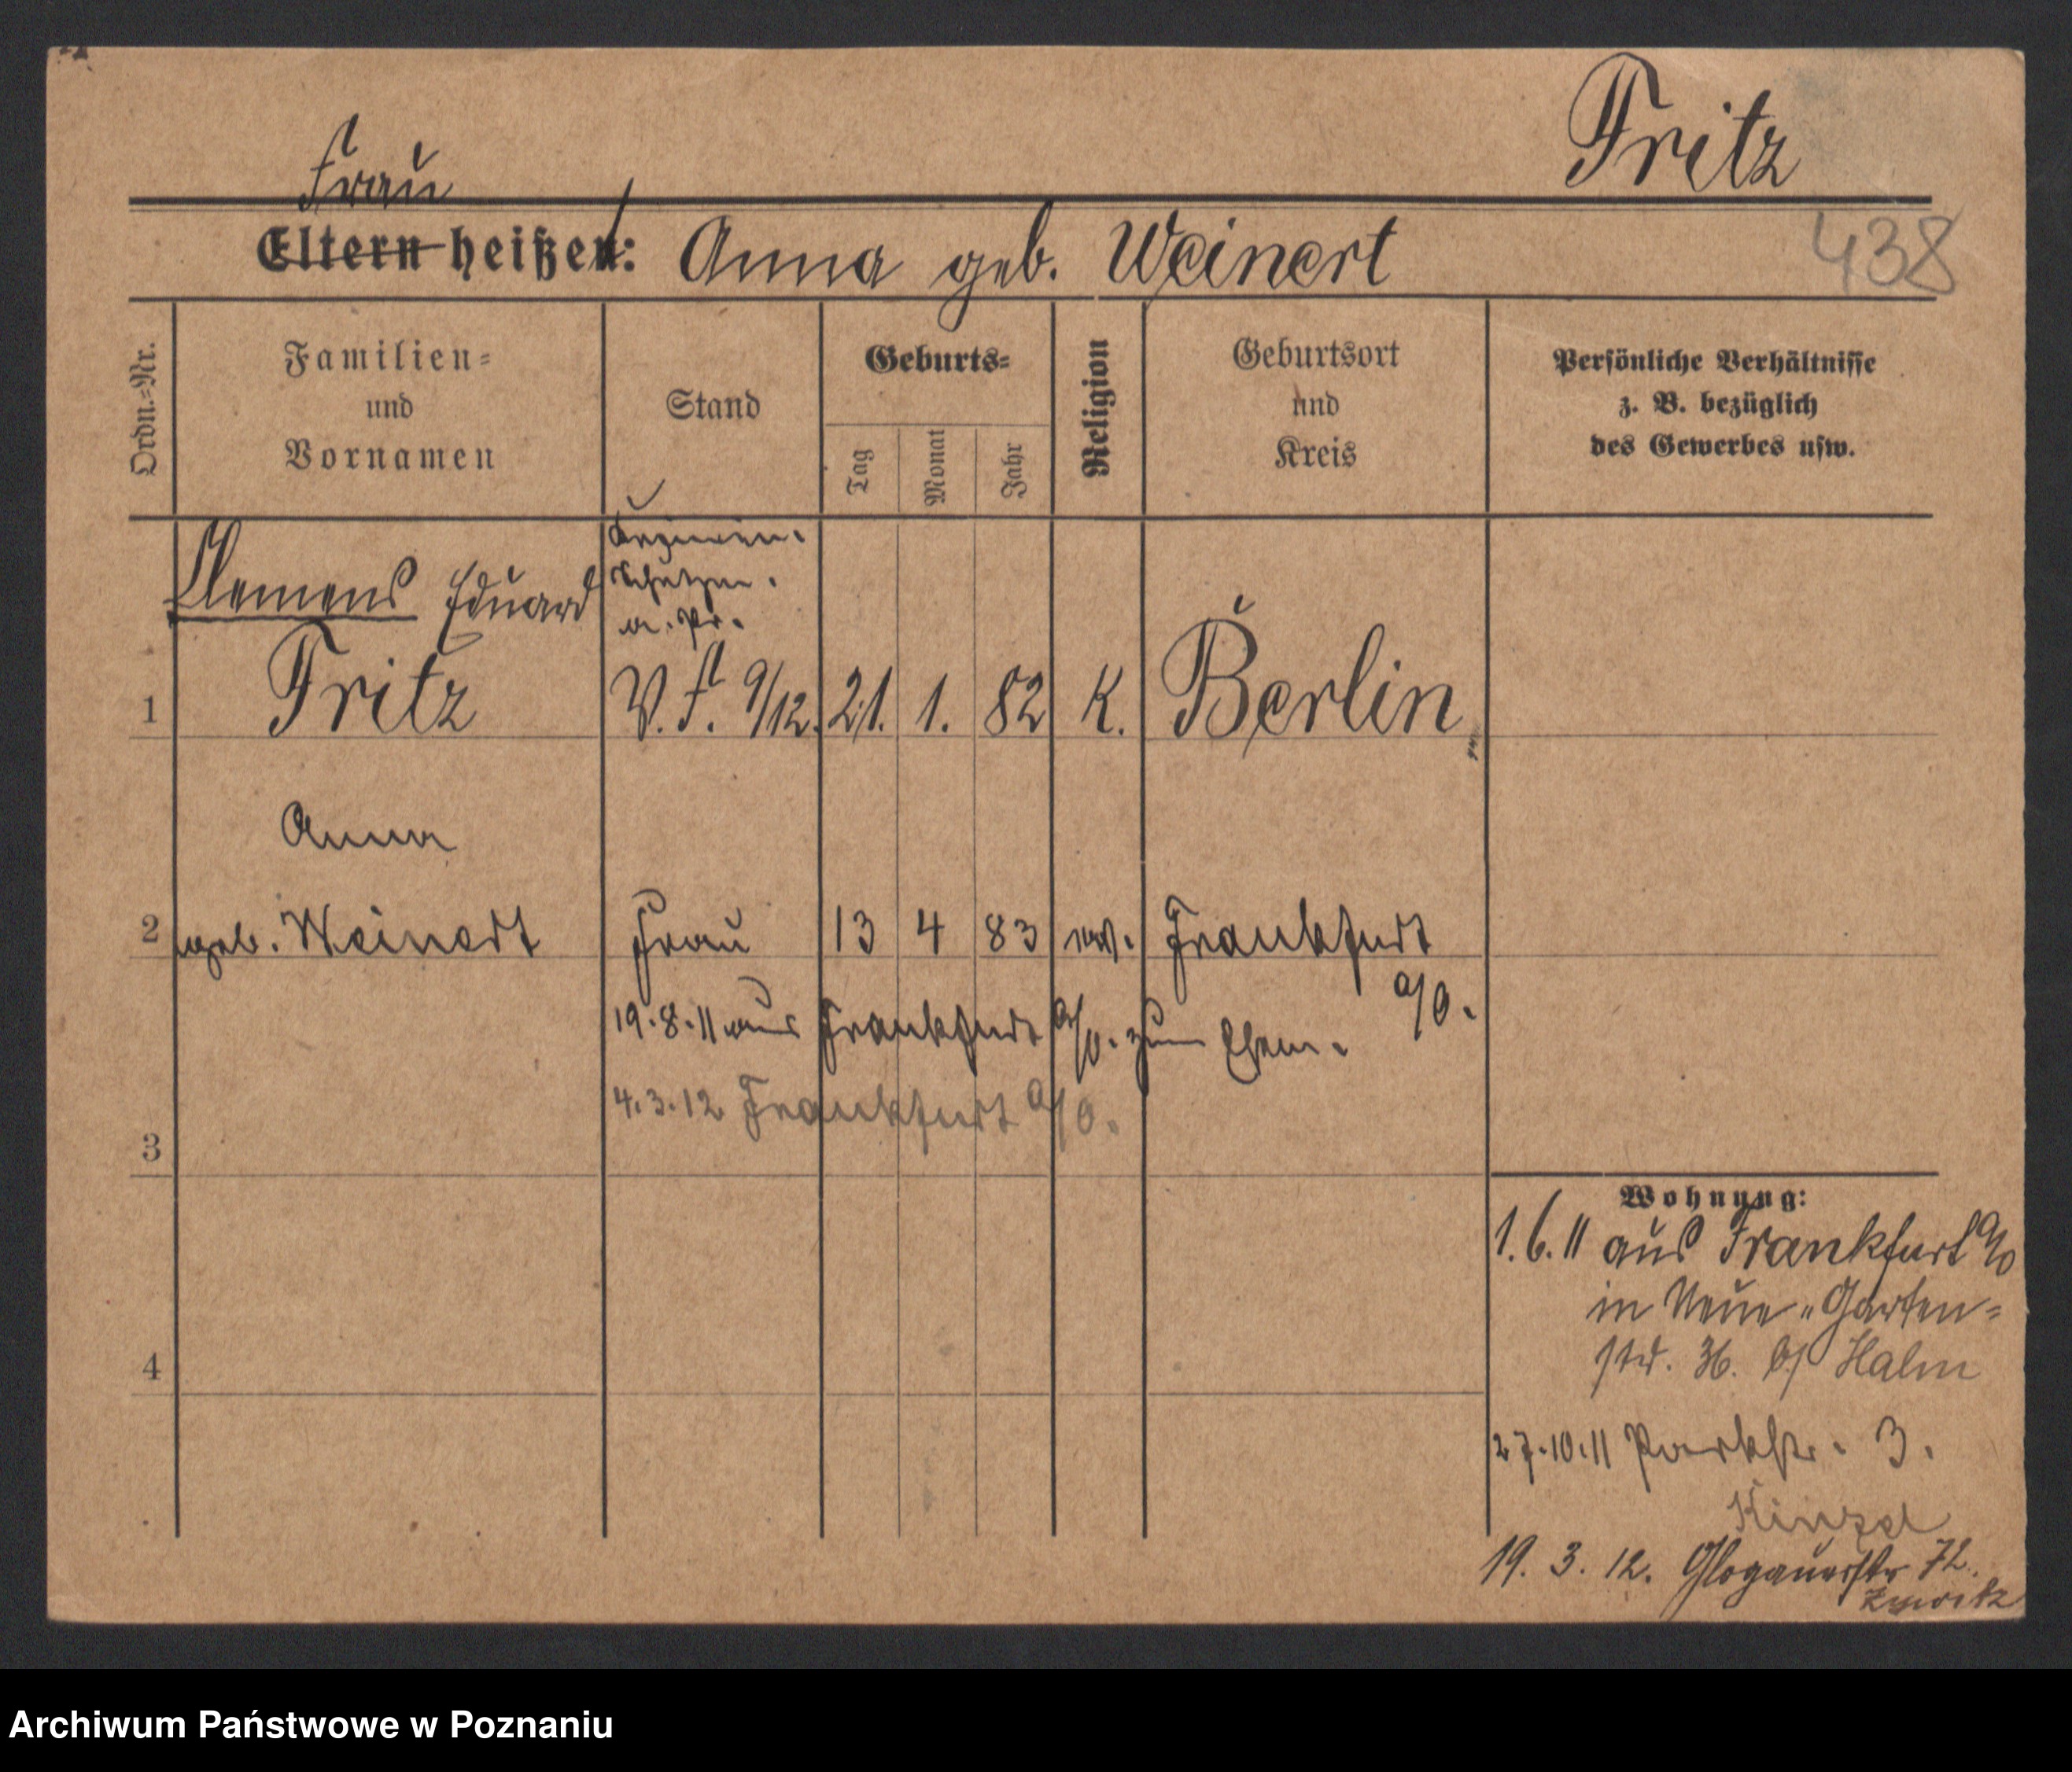 Fritz
Frau
Eltern heißen: Anna geb. Weinert
438
Ordn.=Nr.
Familien=
und
Vornamen
Stand
Geburts=
Tag
Monat
Jahr
Religion
Geburtsort
und
Kreis
Persönliche Verhältnisse
z. B. bezüglich
des Gewerbes usw.
Clemens Eduard
a. Pr.
1 Fritz V. F. 9/12. 21. 1. 82 K. Berlin
Anna
2 geb. Weinert Frau 13 4 83 ev. Frankfurt
a/O.
19.8.11 aus Frankfurt a/O. zum Ehem.
4.3.12 Frankfurt a/O.
3
4
Wohnung:
1.6.11 aus Frankfurt a/O
in Neue Garten=
str. 36. b/ Halm
27.10.11 Parkstr. 3.
Kinzel
19. 3. 12. Glogauerstr 72.
Archiwum Państwowe w Poznaniu